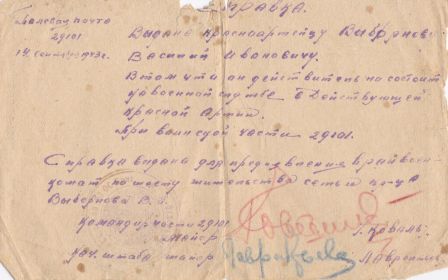 Справка.
Полевая почта
29101
14 сентября 1943г.
Выдана красноармейцу Выборнову
Василий Ивановичу.
В том что он действительно состоит
на военной службе в Действующей
Красной Армии.
При воинской части 29101.
Справка выдана для предъявления Крайвоен-
комат по месту жительства семьи кр-ца
Выборнова В. И.
Командир части 29101
Майор Коваль.
Нач. штаба майор